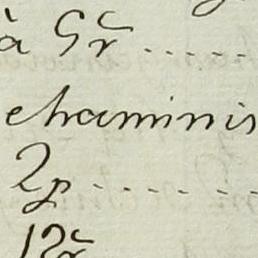 à Gr.....
ehaminis
2p.......
12r